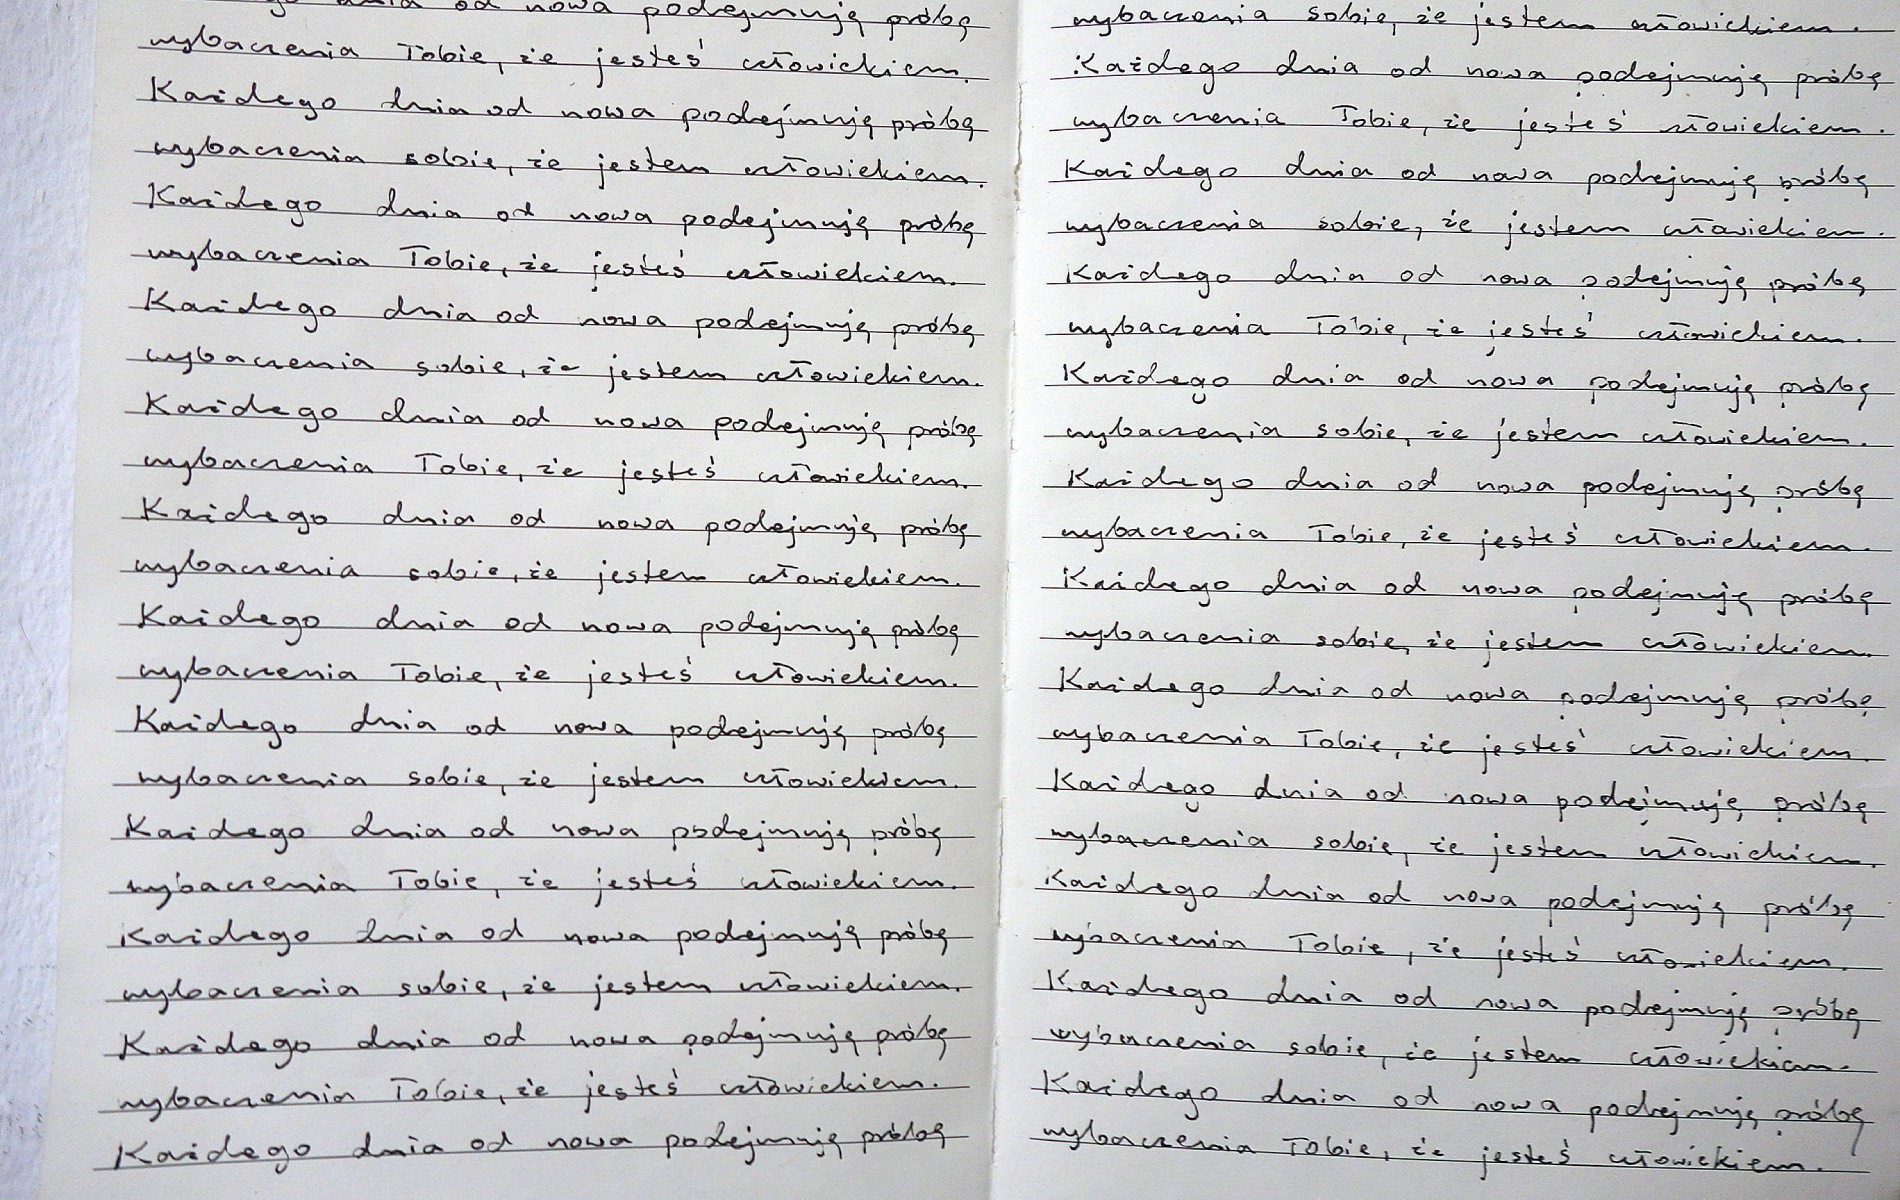 dnia od nowa podejmuję próbę
wybaczenia Tobie, że jesteś człowiekiem.
Każdego dnia od nowa podejmuję próbę
wybaczenia sobie, że jestem człowiekiem.
Każdego dnia od nowa podejmuję próbę
wybaczenia Tobie, że jesteś człowiekiem.
Każdego dnia od nowa podejmuję próbę
wybaczenia sobie, że jestem człowiekiem.
Każdego dnia od nowa podejmuję próbę
wybaczenia Tobie, że jesteś człowiekiem.
Każdego dnia od nowa podejmuję próbę
wybaczenia sobie, że jestem człowiekiem.
Każdego dnia od nowa podejmuję próbę
wybaczenia Tobie, że jesteś człowiekiem.
Każdego dnia od nowa podejmuję próbę
wybaczenia sobie, że jestem człowiekiem.
Każdego dnia od nowa podejmuję próbę
wybaczenia Tobie, że jesteś człowiekiem.
Każdego dnia od nowa podejmuję próbę
wybaczenia sobie, że jestem człowiekiem.
Każdego dnia od nowa podejmuję próbę
wybaczenia Tobie, że jesteś człowiekiem.
Każdego dnia od nowa podejmuję próbę
wybaczenia sobie, że jestem człowiekiem.
Każdego dnia od nowa podejmuję próbę
wybaczenia Tobie, że jesteś człowiekiem.
Każdego dnia od nowa podejmuję próbę
wybaczenia sobie, że jestem człowiekiem.
Każdego dnia od nowa podejmuję próbę
wybaczenia Tobie, że jesteś człowiekiem.
Każdego dnia od nowa podejmuję próbę
wybaczenia sobie, że jestem człowiekiem.
Każdego dnia od nowa podejmuję próbę
wybaczenia Tobie, że jesteś człowiekiem.
Każdego dnia od nowa podejmuję próbę
wybaczenia sobie, że jestem człowiekiem.
Każdego dnia od nowa podejmuję próbę
wybaczenia Tobie, że jesteś człowiekiem.
Każdego dnia od nowa podejmuję próbę
wybaczenia sobie, że jestem człowiekiem.
Każdego dnia od nowa podejmuję próbę
wybaczenia Tobie, że jesteś człowiekiem.
Każdego dnia od nowa podejmuję próbę
wybaczenia sobie, że jestem człowiekiem.
Każdego dnia od nowa podejmuję próbę
wybaczenia Tobie, że jesteś człowiekiem.